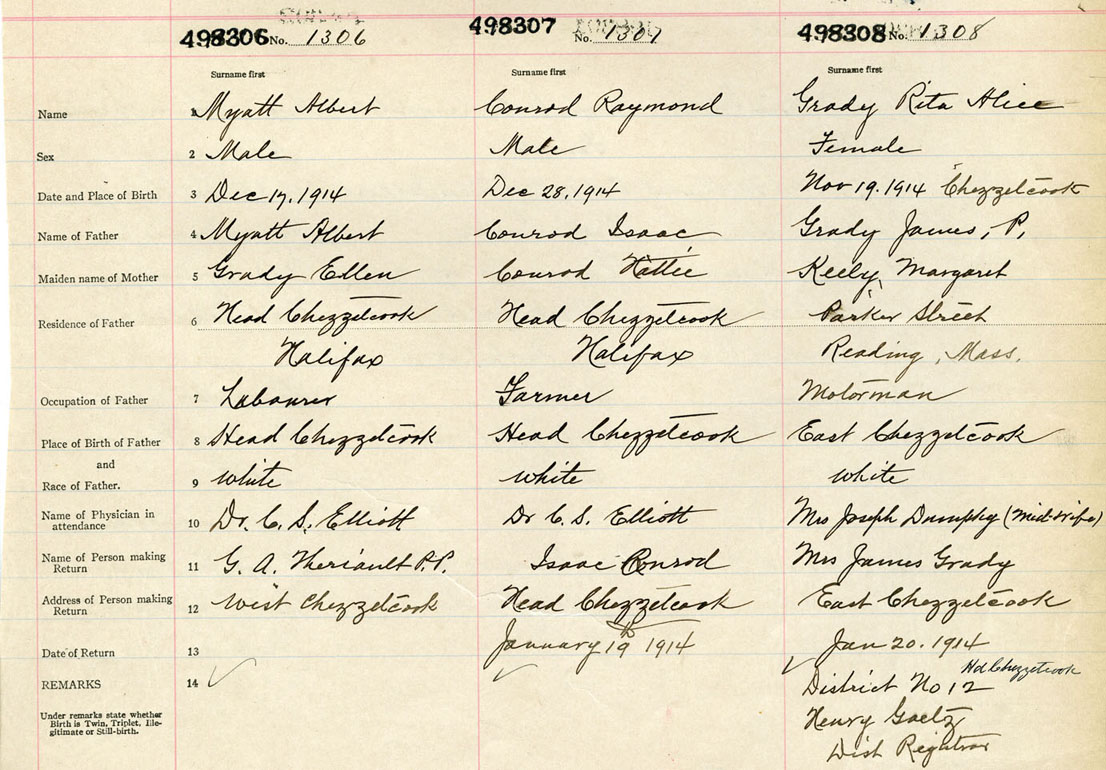 498306 No. 1306 498307 No. 1307 498308 No. 1308
Surname first Surname first Surname first
Name 1 Myatt Albert Conrod Raymond Grady Rita Alice
Sex 2 Male Male Female
Date and Place of Birth 3 Dec 17, 1914 Dec 28, 1914 Nov 19. 1914 Chezzetcook
Name of Father 4 Myatt Albert Conrod Isaac Grady James, P,
Maiden name of Mother 5 Grady Ellen Conrod Hattie Keely, Margaret
Residence of Father 6 Head Chezzetcook Head Chezzetcook Parker Street
Halifax Halifax Reading, Mass,
Occupation of Father 7 Labourer Farmer Motorman
Place of Birth of Father 8 Head Chezzetcook Head Chezzetcook East Chezzetcook
and
Race of Father. 9 white white white
Name of Physician in
attendance 10 Dr. C. S. Elliott Dr C. S. Elliott Mrs Joseph Dumphy (Mid-wife)
Name of Person making
Return 11 G. A. Theriault P.P. Isaac Conrod Mrs James Grady
Address of Person making
Return 12 West Chezzetcook Head Chezzetcook East Chezzetcook
Date of Return 13 January 19th 1914 Jan 20. 1914
REMARKS 14 District No 12 Hd Chezzetcook
Under remarks state whether
Birth is Twin, Triplet, Ille-
gitimate or Still-birth.
Henry Gaetz
Dist Registrar